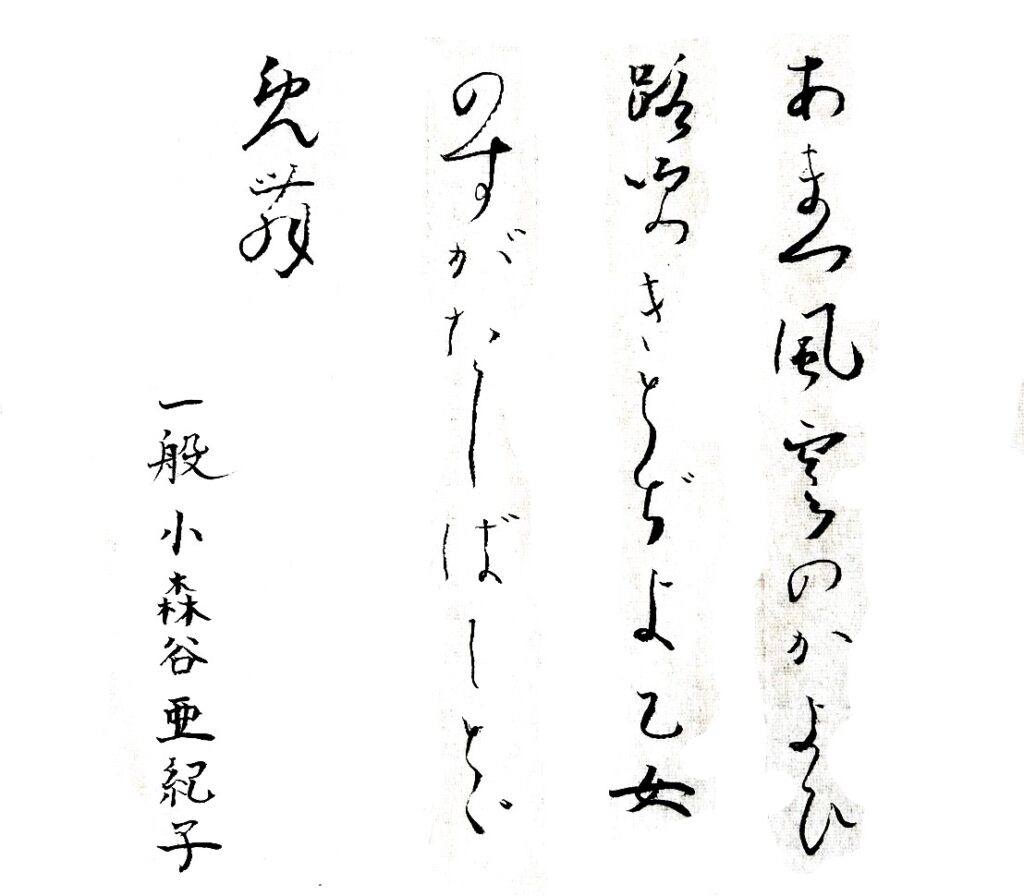 あまつ風雲のかよひ
路吹きとぢよ乙女
のすがたしばしとゞ
免舞
一般 小森谷亜紀子